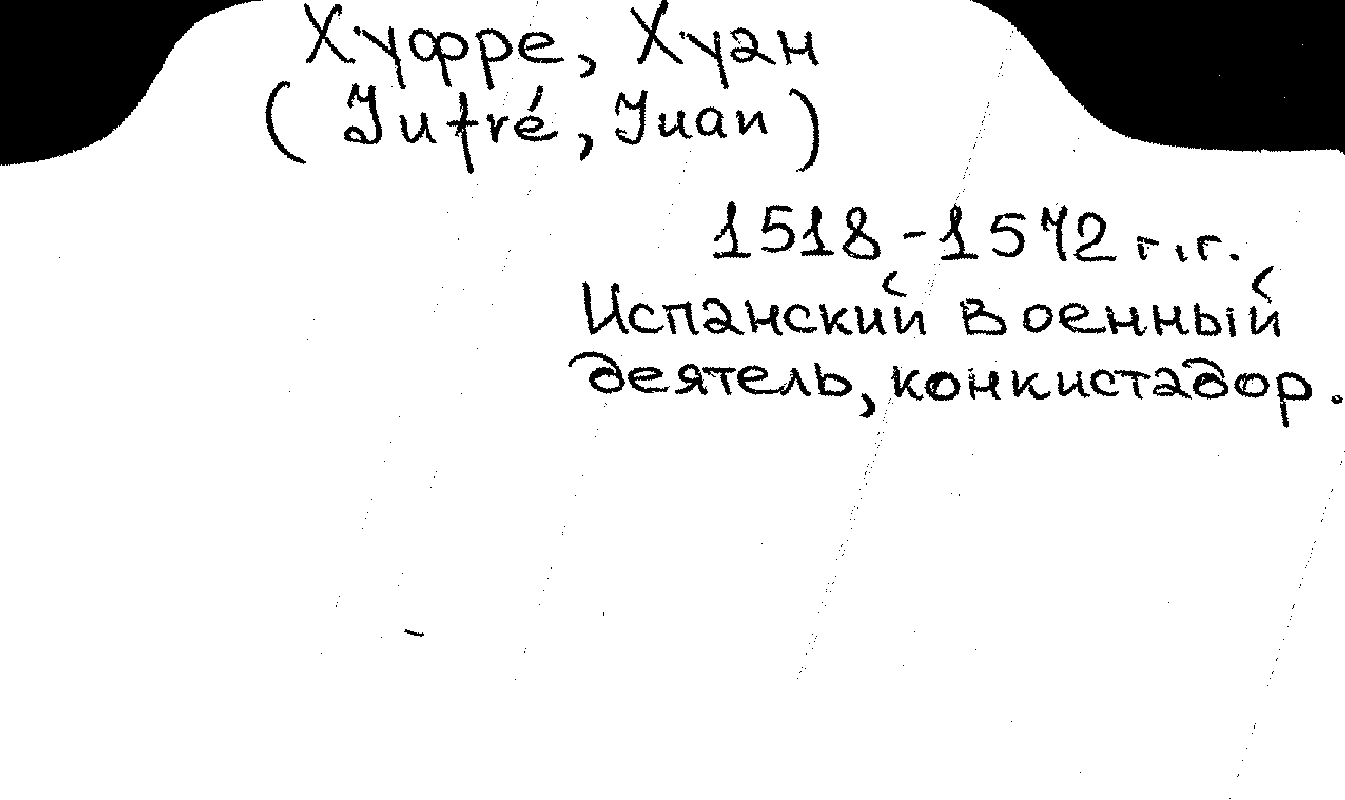 Хуфре, Хуан
(Jufré, Juan)
1518-1572 г.г.
Испанский военный
деятель, конкистадор.